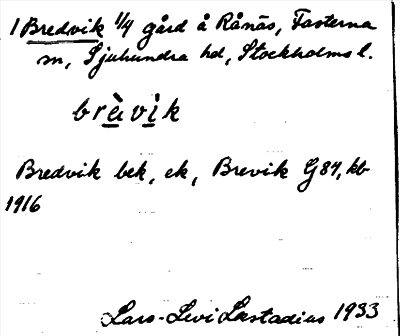 1 Bredvik 1/4 gård å Rånäs, Fasterna
sn, Sjuhundra hd, Stockholms l.
brèvìk
Bredvik bek, ek, Brevik G 84, kb
1916
Lars-Levi Læstadius 1933